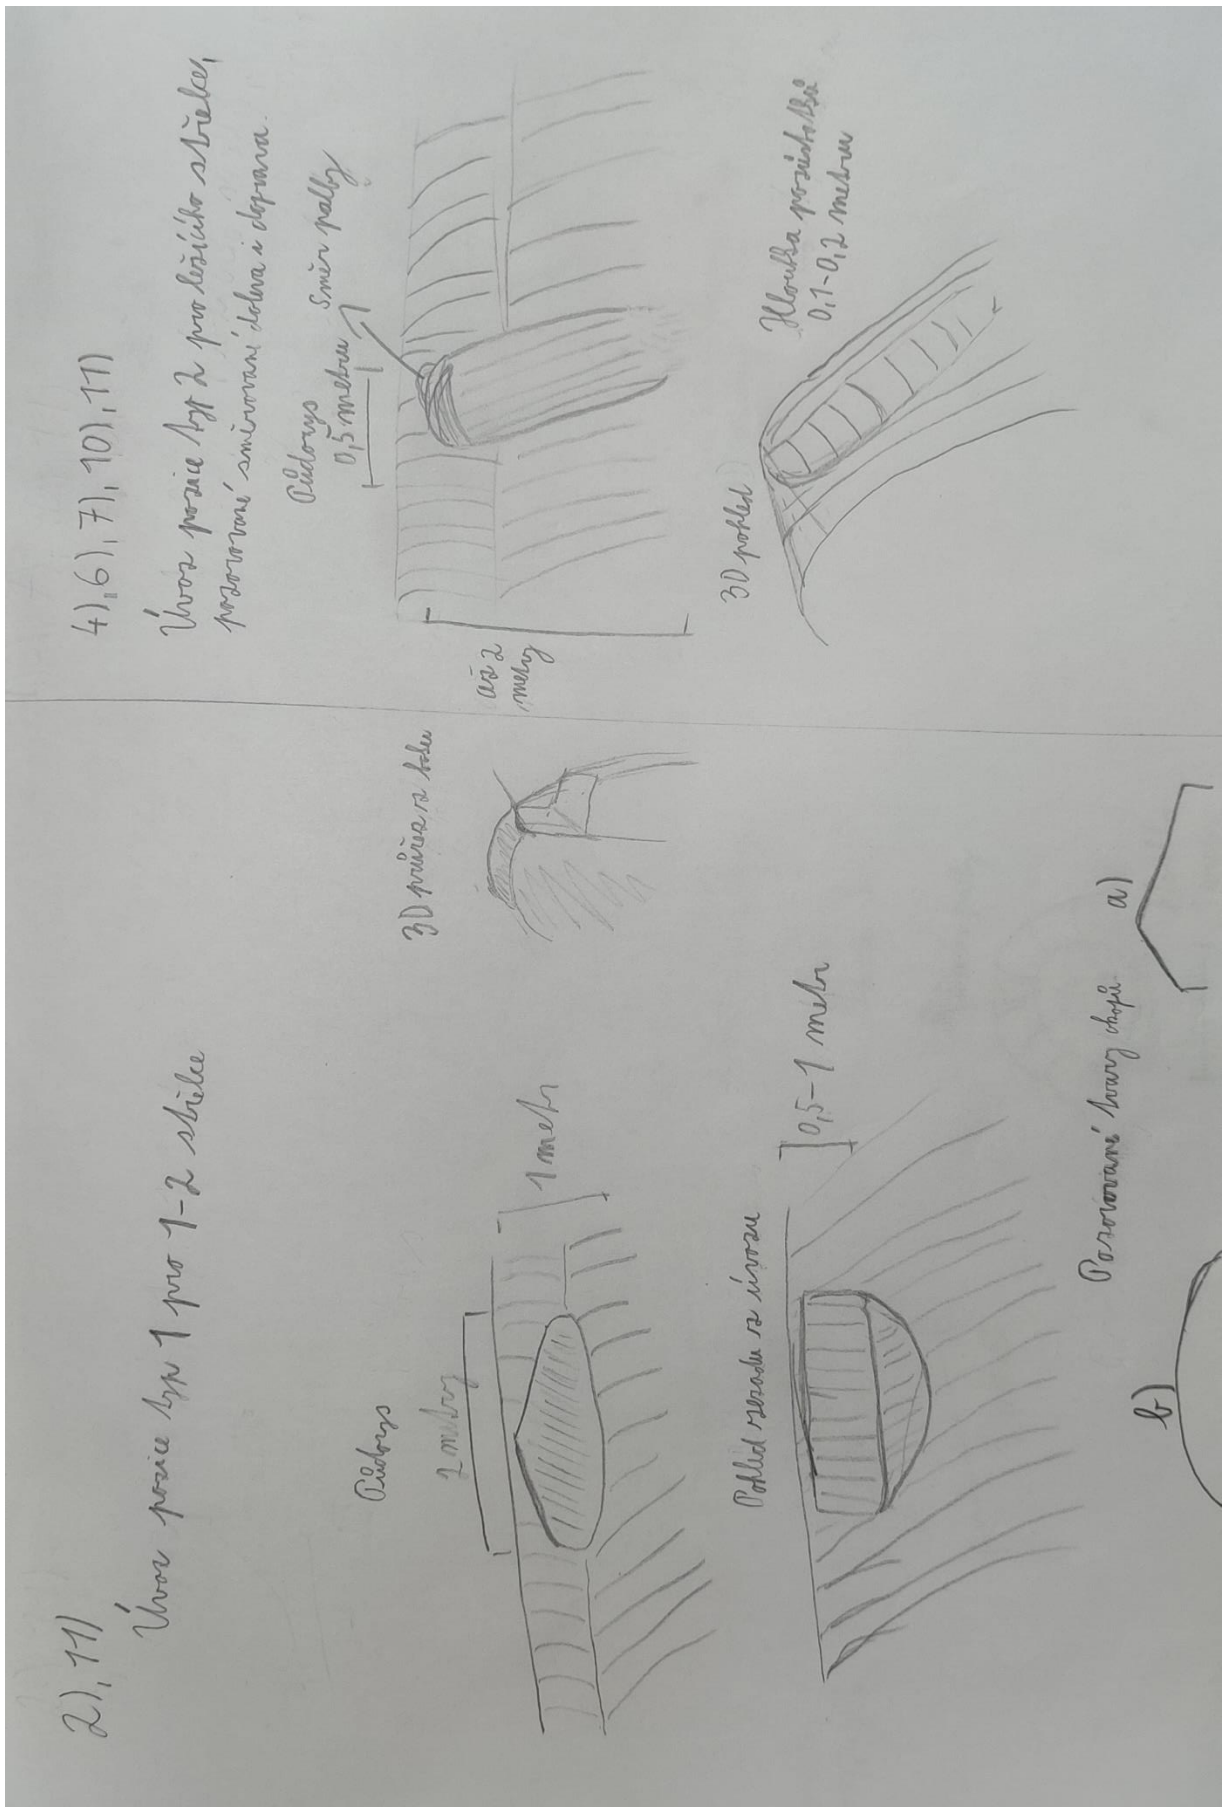 2), 11)
Úvoz pozice typ 1 pro 1-2 střelce
Půdorys
2 metry
1 metr
3D průřez z boku
Pohled zezadu z úvozu
0,5-1 metr
Pozorované tvary okopů
b)
a)
4), 6), 7), 10), 11)
Úvoz pozice typ 2 pro ležícího střelce,
pozorované směrování doleva i doprava.
Půdorys
0,5 metru
Směr palby
až 2
metry
3D pohled
Hloubka pozůstatků
0,1-0,2 metru